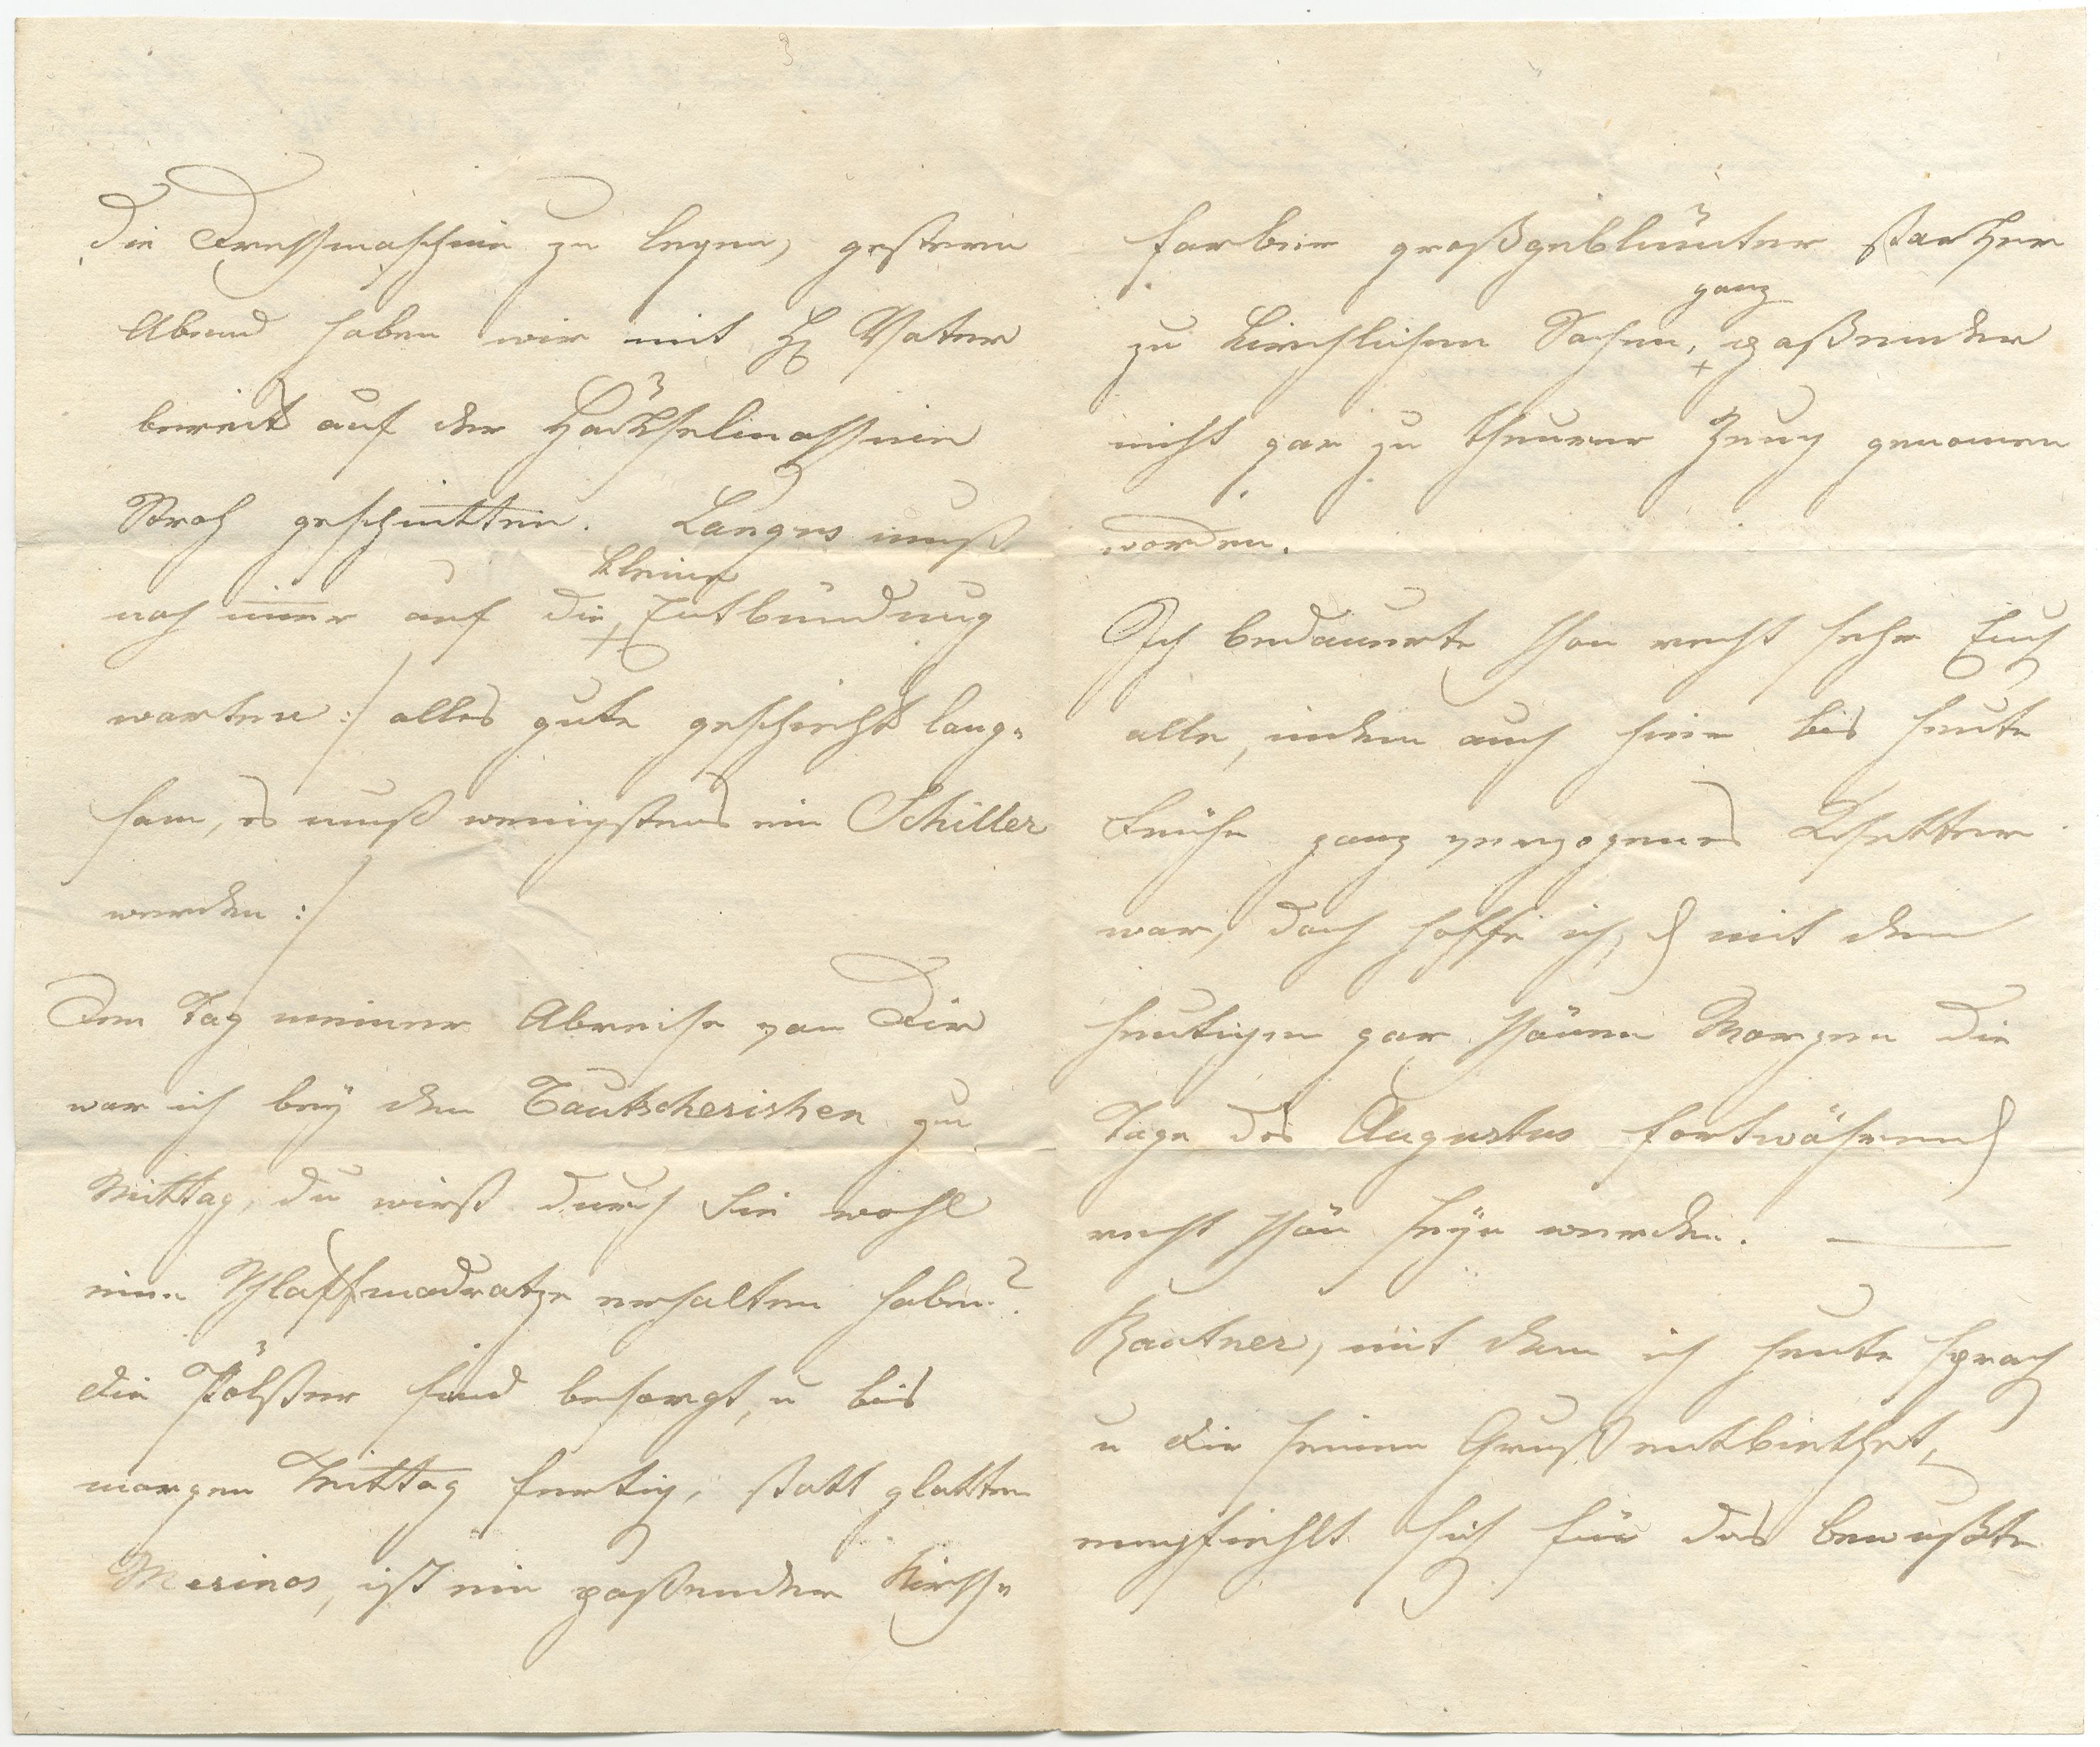 die Dreschmaschine zu legen, gestern
Abend haben wir mit H: Vater
bereits auf der Häckselmaschine
Stroh geschnitten. Langes muß
noch immer auf die kleine Entbindung
warten :/ alles gute geschieht lang-
sam, es muß wenigstens ein Schiller
werden :/
Den Tag meiner Abreise von Dir
war ich bey den Tautscherishen zu
Mittag, du wirst durch Sie wohl
eine Schlaffmadratze erhalten haben?
die Pölster sind besorgt, u bis
morgen Mittag fertig, statt glatten
Merinos, ist ein paßender Kirsch-
farber großgeblümter starker
zu kirchlichen Sachen, ganz paßender
nicht gar zu theurer Zeug genomen
worden.
Ich bedauerte schon recht sehr Euch
alle, indem auch hier bis heute
Frühe ganz verzogenes Wetter
war, doch hoffe ich, daß mit dem
heutigen gar schönen Morgen die
Tage des Augustus fortwährend
recht schön seyn werden. —
Kautner, mit dem ich heute sprach
u dir seinen Gruß entbiethet,
empfiehlt sich für das bewußte